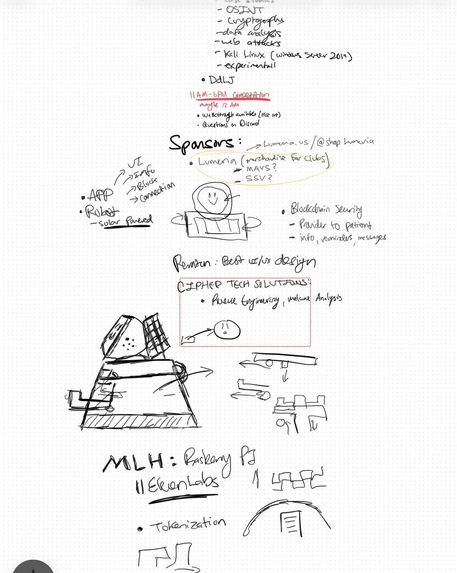 - OSINT
- Cryptography
- data analysis
- web attacks
- Kali Linux (Windows Server 2019)
- experimental
• DdLJ
11AM - 5PM Competition
maybe 12 AM
• Walkthrough available
• Questions on Discord
Sponsors:
→ Lumeria.us / @shop.lumeria
• Lumeria (merchandise for clubs)
- MAVS?
- SSV?
UI
→ Info
→ Block
→ Connection
• APP
• Robot
- solar powered
• Blockchain Security
- Provider to patient
- info, reminders, messages
: Best ui/ux design
CIPHER TECH SOLUTIONS:
• Reverse Engineering, malware Analysis
MLH: Raspberry Pi
|| ElevenLabs
• Tokenization